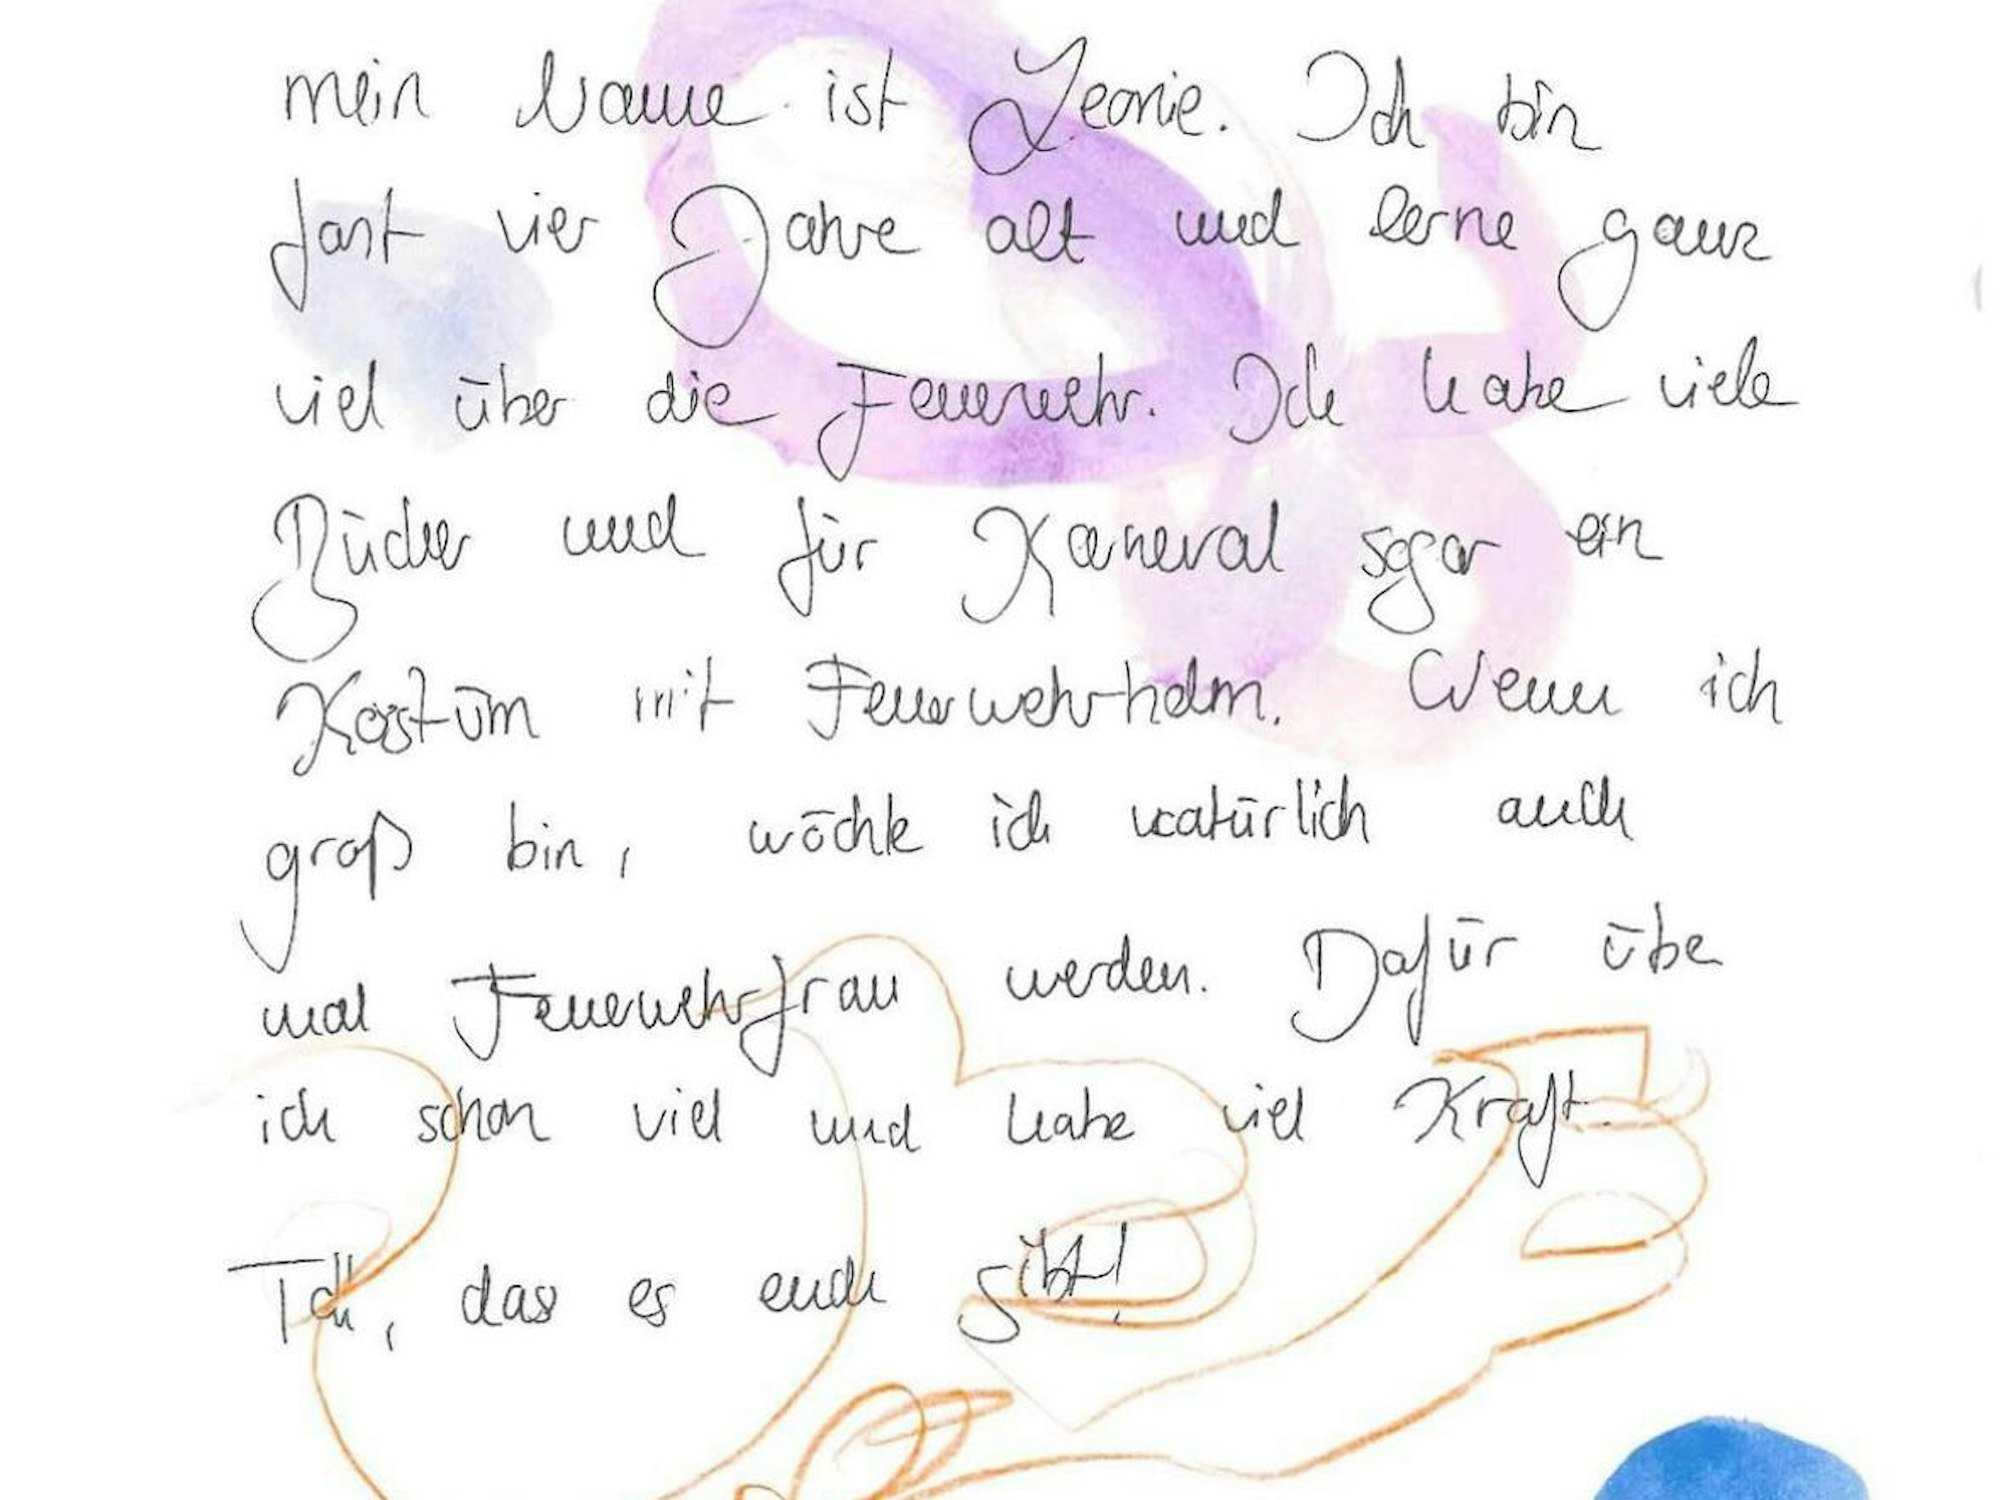 mein Name ist Leonie. Ich bin
fast vier Jahre alt und lerne ganz
viel über die Feuerwehr. Ich habe viele
Bücher und für Karneval sogar ein
Kostüm mit Feuerwehrhelm. Wenn ich
groß bin, möchte ich natürlich auch
mal Feuerwehrfrau werden. Dafür übe
ich schon viel und habe viel Kraft.
Toll, das es euch gibt!